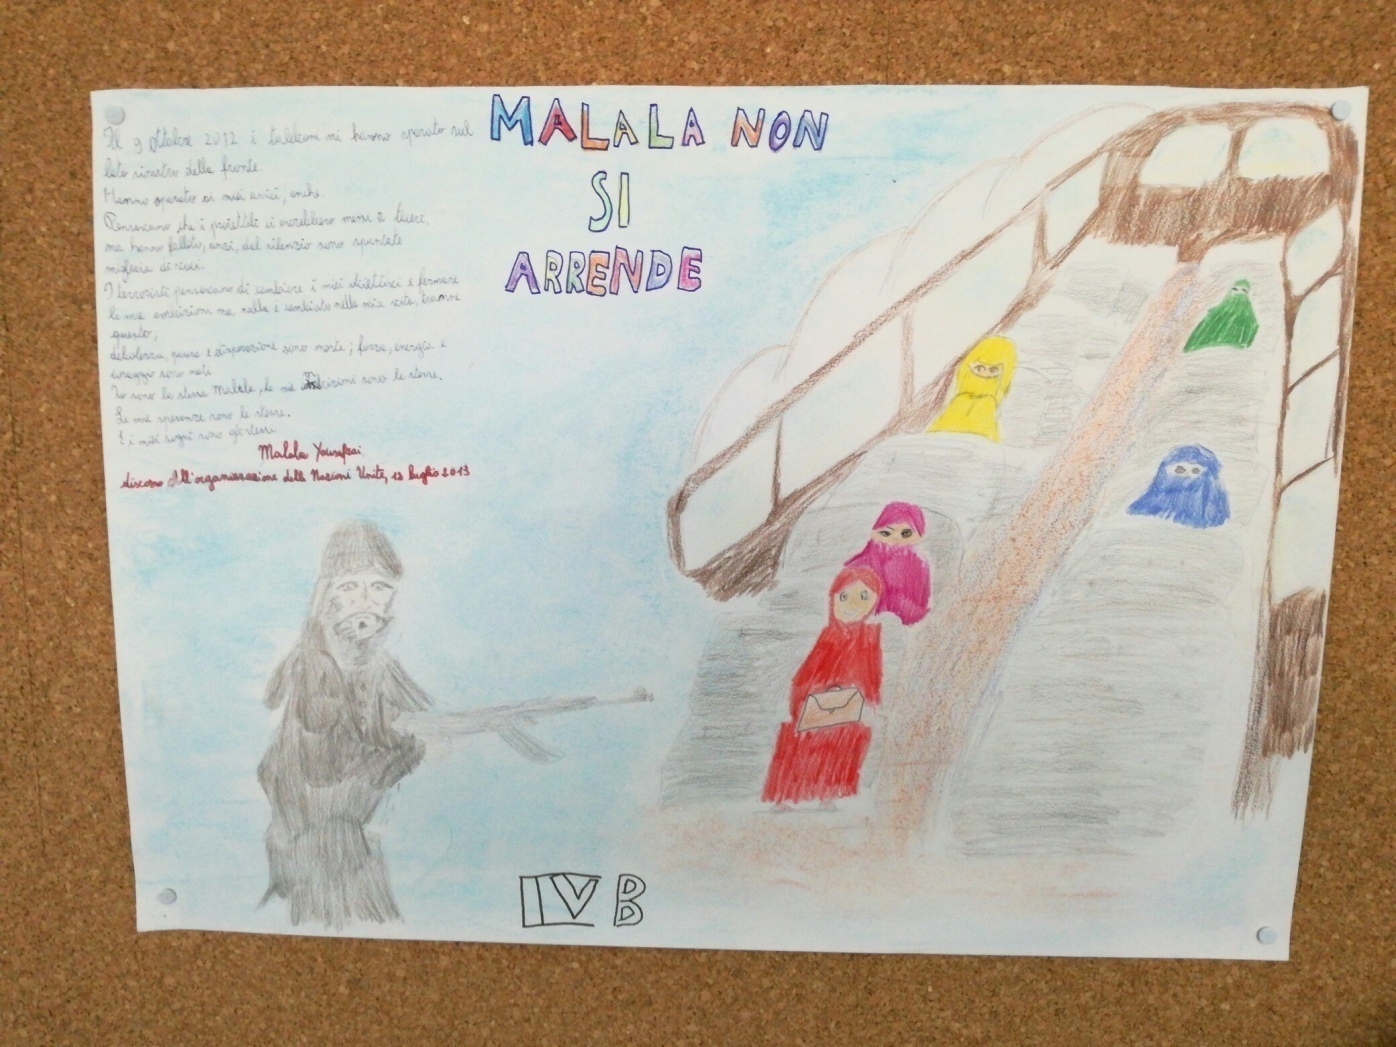 MALALA NON
SI
ARRENDE
Il 9 ottobre 2012 i talebani mi hanno sparato sul
lato sinistro della fronte.
Hanno sparato ai miei amici, anche.
Pensavano che i proiettili ci avrebbero messi a tacere,
ma hanno fallito, anzi, dal silenzio sono spuntate
migliaia di voci.
I terroristi pensavano di cambiare i miei obiettivi e fermare
le mie ambizioni ma nulla è cambiato nella mia vita, tranne
questo;
debolezza, paura e disperazione sono morte; forza, energia e
coraggio sono nati.
Io sono la stessa Malala, le mie ambizioni sono le stesse.
Le mie speranze sono le stesse.
E i miei sogni sono gli stessi
Malala Yousafzai
discorso all'organizzazione delle Nazioni Unite, 12 luglio 2013
IV B